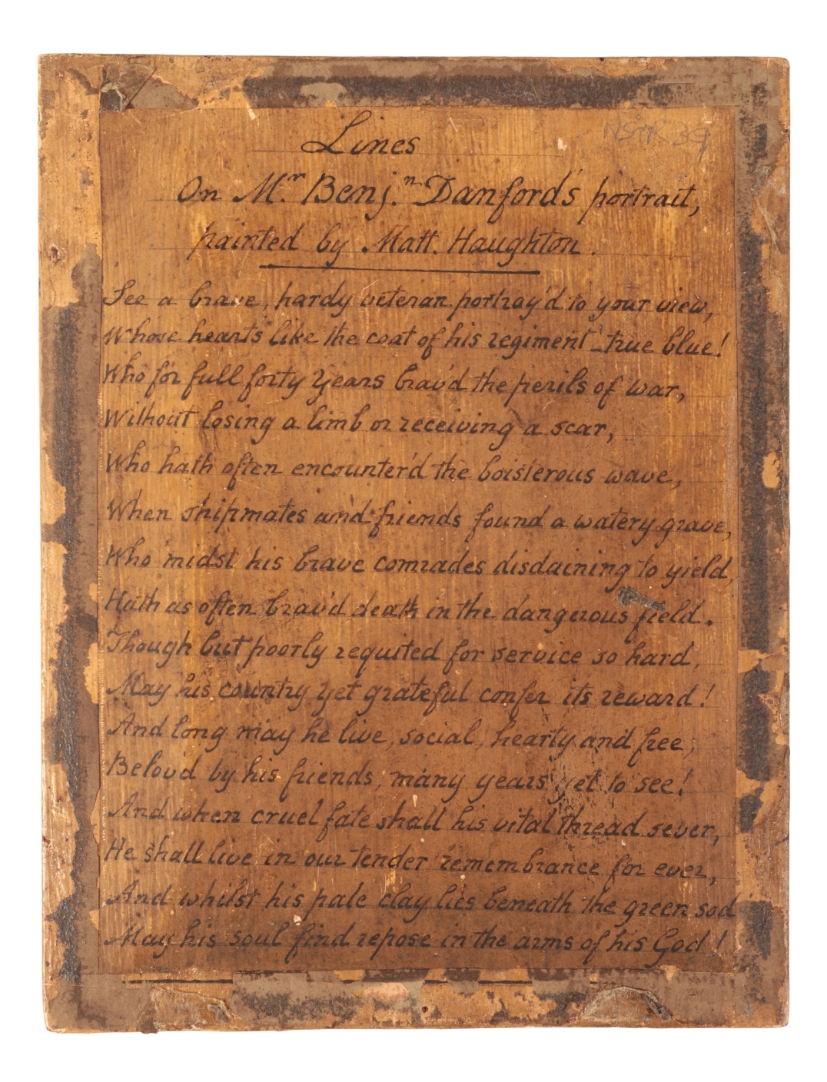 Lines
On Mr. Benj.n Danford's portrait,
painted by Matt. Haughton.
See a brave, hardy veteran portray'd to your view,
Whose hearts like the coat of his regiment - true blue!
Who for full forty years brav'd the perils of war,
Without losing a limb or receiving a scar,
Who hath often encounter'd the boisterous wave,
When shipmates and friends found a watery grave,
Who 'midst his brave comrades disdaining to yield,
Hath as often brav'd death in the dangerous field.
Though but poorly requited for service so hard,
May his country yet grateful confer its reward!
And long may he live, social, hearty and free,
Belov'd by his friends, many years yet to see!
And when cruel fate shall his vital thread sever,
He shall live in our tender remembrance for ever,
And whilst his pale clay lies beneath the green sod
May his soul find repose in the arms of his God!